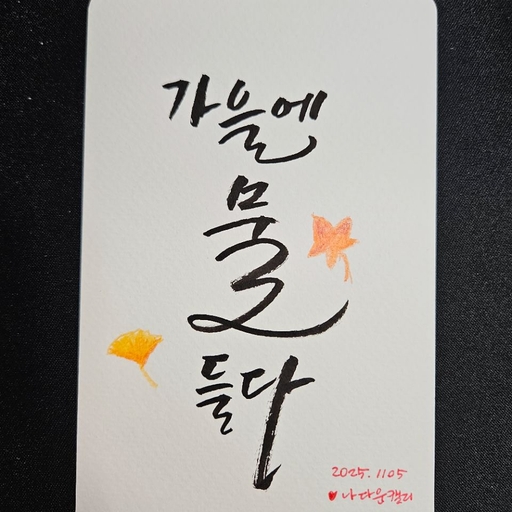 가을에
물
들다
2025.1105
♥나다움캘리